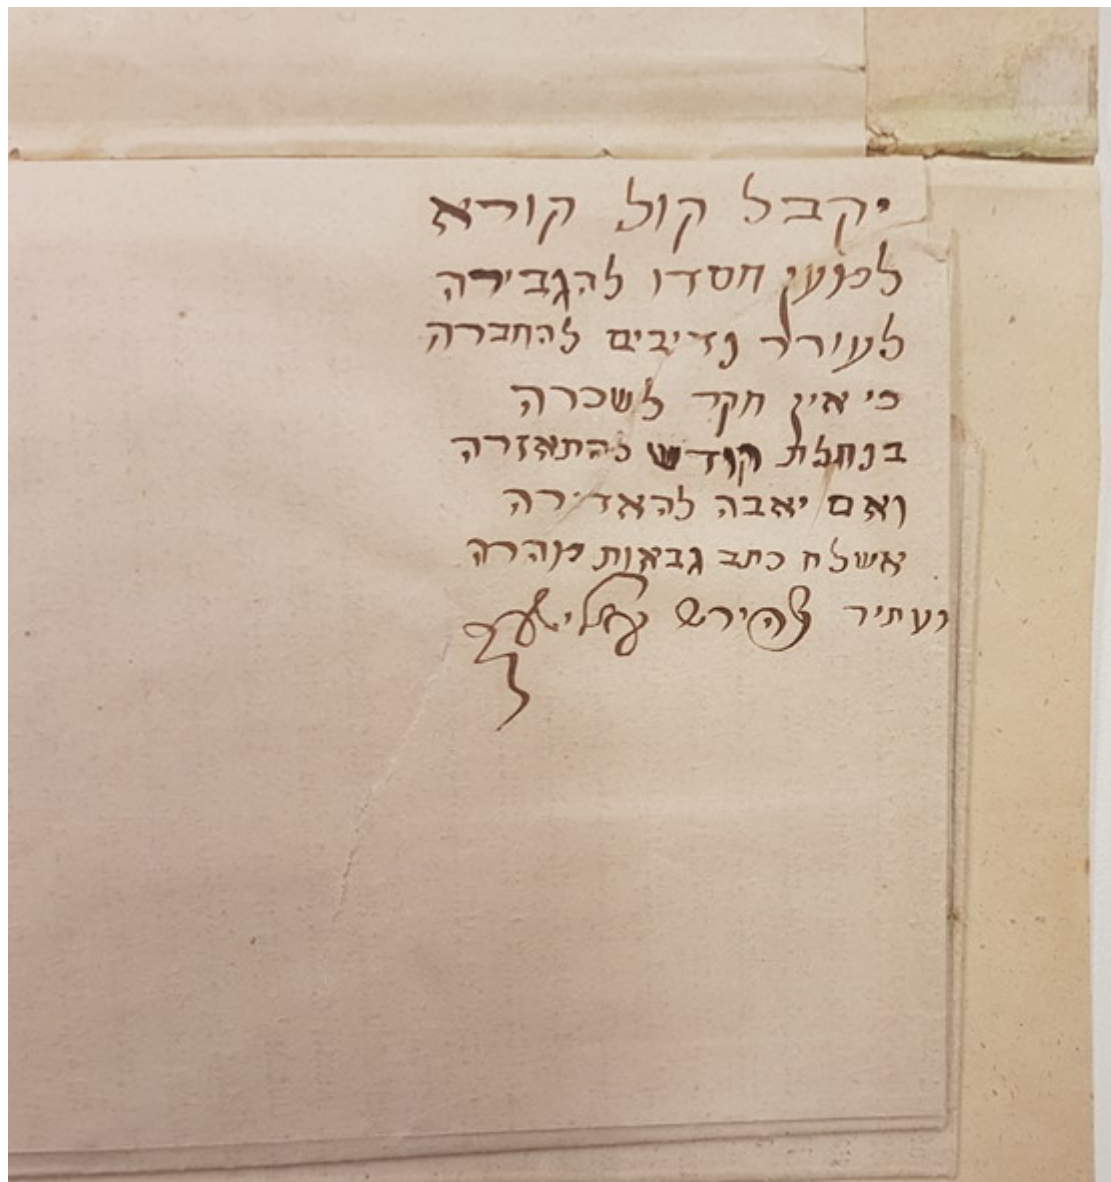 יקבל קול קורא
למען חסדו להגבירה
לעורר נדיבים להחברה
כי אין חקר לשכרה
בנחלת קודש להתאזרה
ואם יאבה להאדירה
אשלח כתב גבאות מהרה